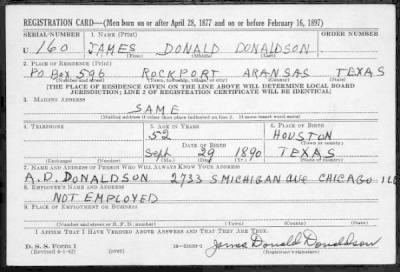 REGISTRATION CARD—(Men born on or after April 28, 1877 and on or before February 16, 1897)
SERIAL NUMBER 1. NAME (Print) ORDER NUMBER
U 160 JAMES DONALD DONALDSON
(First) (Middle) (Last)
2. PLACE OF RESIDENCE (Print)
PO BOX 596 ROCKPORT ARANSAS TEXAS
(Number and street) (Town, township, village, or city) (County) (State)
[THE PLACE OF RESIDENCE GIVEN ON THE LINE ABOVE WILL DETERMINE LOCAL BOARD
JURISDICTION; LINE 2 OF REGISTRATION CERTIFICATE WILL BE IDENTICAL]
3. MAILING ADDRESS
SAME
[Mailing address if other than place indicated on line 2. If same insert word same]
4. TELEPHONE 5. AGE IN YEARS 6. PLACE OF BIRTH
52 HOUSTON
DATE OF BIRTH (Town or county)
Sept. 29 1890 TEXAS
(Exchange) (Number) (Mo.) (Day) (Yr.) (State or country)
7. NAME AND ADDRESS OF PERSON WHO WILL ALWAYS KNOW YOUR ADDRESS
A.D. DONALDSON 2733 S MICHIGAN AVE CHICAGO ILL
8. EMPLOYER'S NAME AND ADDRESS
NOT EMPLOYED
9. PLACE OF EMPLOYMENT OR BUSINESS
(Number and street or R. F. D. number) (Town) (County) (State)
I AFFIRM THAT I HAVE VERIFIED ABOVE ANSWERS AND THAT THEY ARE TRUE.
D. S. S. Form 1
(Revised 4-1-42) (over) James Donald Donaldson
(Registrant's signature)